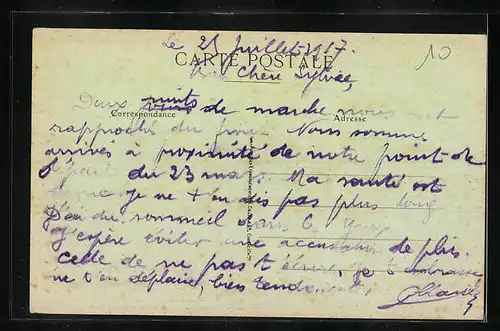 Le 25 Juillet 1917.
CARTE POSTALE
Chère Sylvée,
Deux nuits de marche nous ont
Correspondance Adresse
rapproché du front. Nous sommes
arrivés à proximité de notre point de
départ du 23 mars. Ma santé est
bonne je ne t'en dis pas plus long
J'ai du sommeil dans les yeux
J'espère éviter une accusation de plus.
Celle de ne pas t'écrire. Je t'embrasse
ne t'en déplaise, bien tendrement.
10